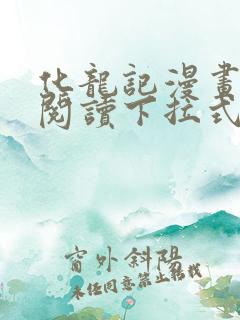 化龍記漫畫
閱讀下拉式
窗外斜陽
未經同意禁止轉載